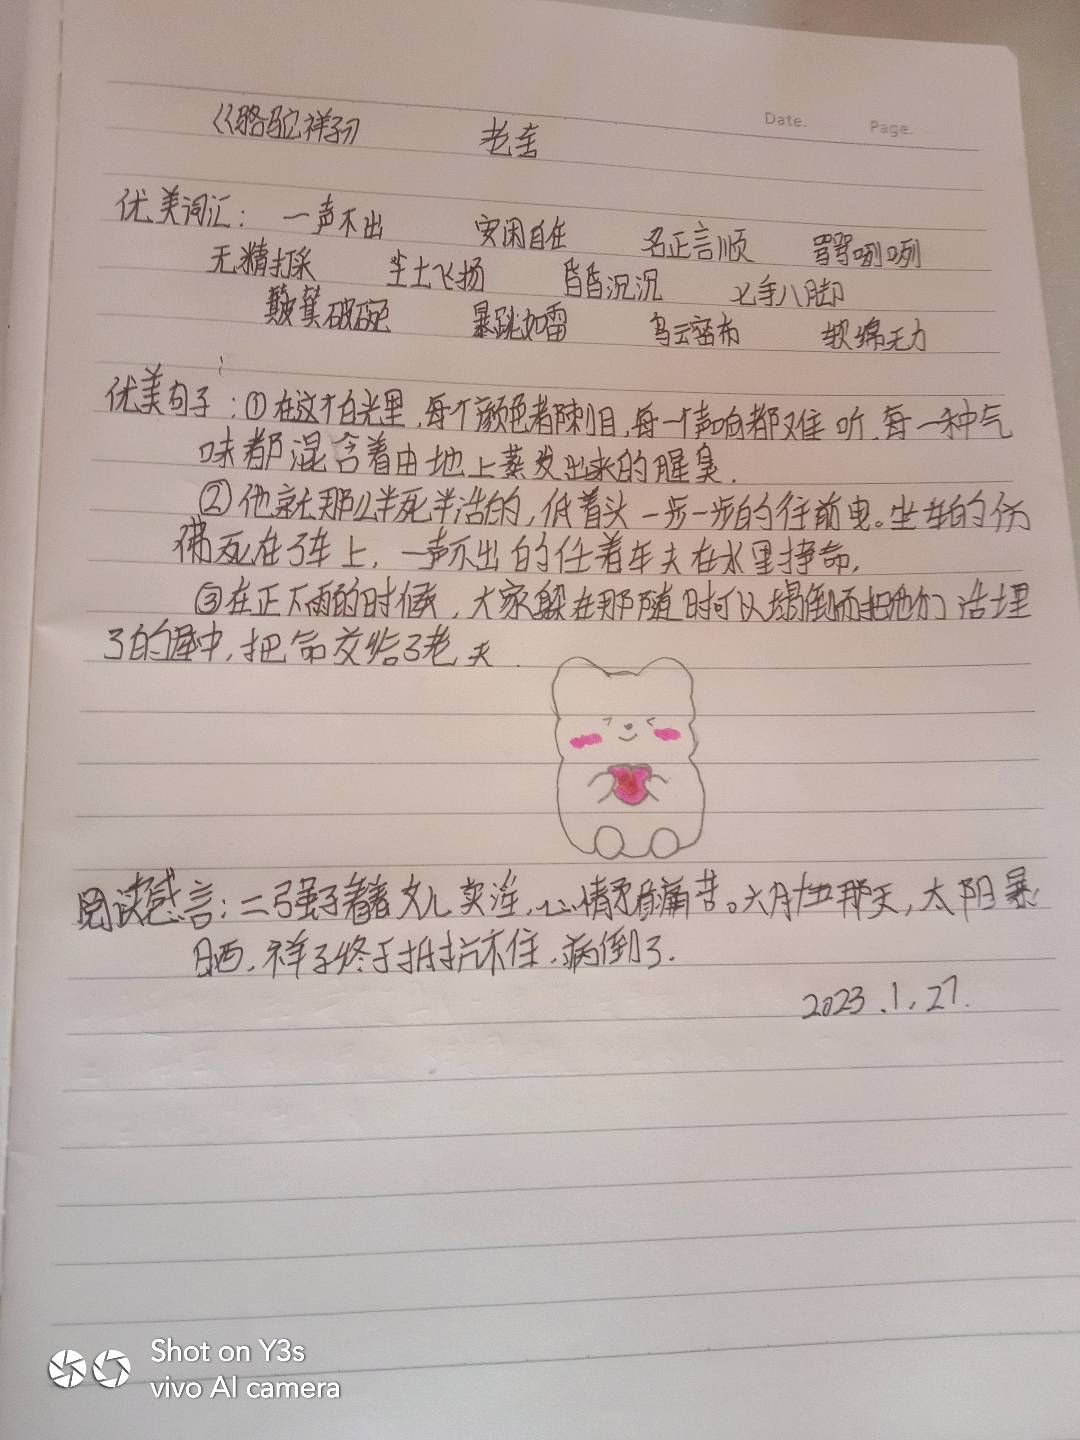 《骆驼祥子》 老舍
Date. Page.
优美词汇： 一声不出 安闲自在 名正言顺 骂骂咧咧
无精打采 尘土飞扬 昏昏沉沉 七手八脚
颠簸破碗 暴跳如雷 乌云密布 软绵无力
优美句子：①在这个白光里,每个颜色都刺目,每一个声响都难听,每一种气
味都混含着由地上蒸发出来的腥臭.
②他就那么半死半活的,低着头一步一步的往前曳。坐车的仿
佛死在了车上,一声不出的任着车夫在水里挣命,
③在正下雨的时候,大家躲在那随时可以塌倒而把他们活埋
了的屋中,把命交给了老天.
阅读感言：二强子看着女儿卖淫,心情矛盾痛苦。六月十五那天,太阳暴
晒,祥子终于抵抗不住,病倒了.
2023.1.27.
Shot on Y3s
vivo AI camera